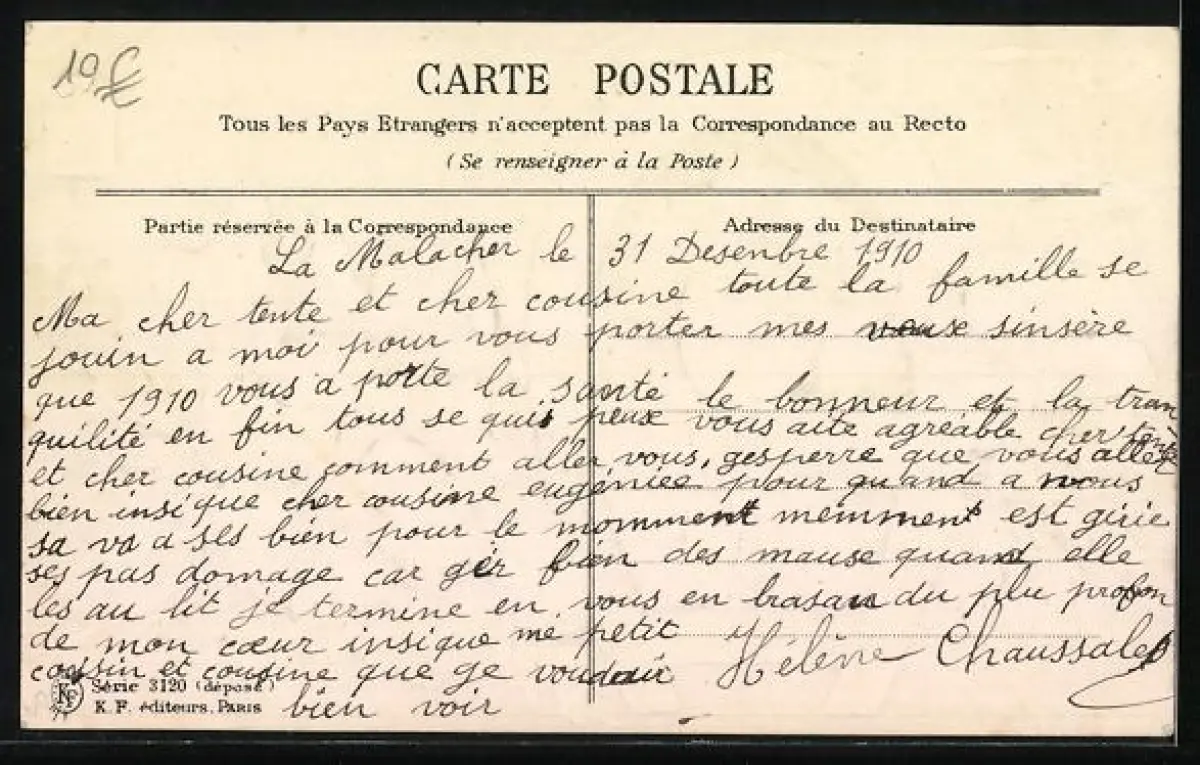 19 €
CARTE POSTALE
Tous les Pays Etrangers n'acceptent pas la Correspondance au Recto
(Se renseigner à la Poste)
Partie réservée à la Correspondance
Adresse du Destinataire
La Malacher le 31 Desenbre 1910
Ma cher tente et cher cousine toute la famille se
jouin a moi pour vous porter mes veux sinsère
que 1910 vous a porte la santé le bonneur et la tran
quilité en fin tous se quis peux vous aite agréable cher tante
et cher cousine comment aller vous, gesperre que vous allez
bien insi que cher cousine eugéniée pour quand a nous
sa va a ses bien pour le momment memment est gérie
ses pas domage car ger bien des mause quand elle
les au lit je termine en vous en brasan du plu profon
de mon cœur insique mé petit
cousin et cousine que ge voudair
bien voir
Hélène Chaussale
KF
Série 3120 (déposé)
K. F. éditeurs, PARIS